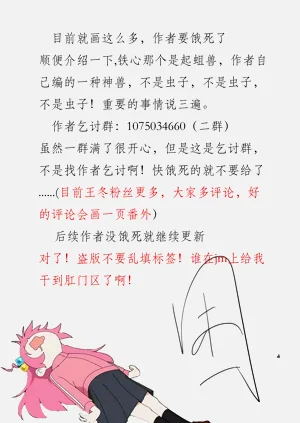 目前就画这么多，作者要饿死了
顺便介绍一下,铁心那个是起蛆兽，作者自
己编的一种神兽，不是虫子，不是虫子，
不是虫子！重要的事情说三遍。
作者乞讨群：1075034660（二群）
虽然一群满了很开心，但是这是乞讨群，
不是找作者乞讨啊！快饿死的就不要给了
......(目前王冬粉丝更多，大家多评论，好
的评论会画一页番外)
后续作者没饿死就继续更新
对了！盗版不要乱填标签！谁在jm上给我
干到肛门区了啊！
4